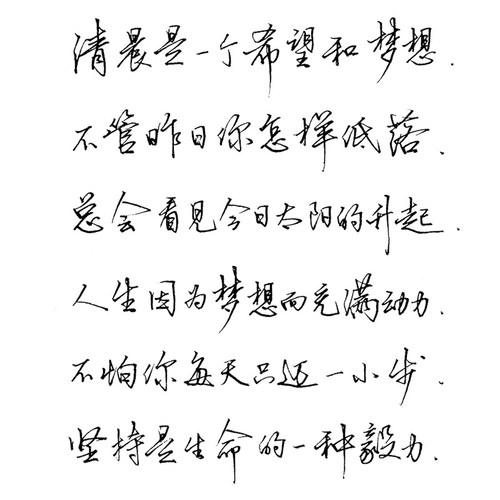 清晨是一个希望和梦想.
不管昨日你怎样低落.
总会看见今日太阳的升起.
人生因为梦想而充满动力.
不怕你每天只迈一小步.
坚持是生命的一种毅力.